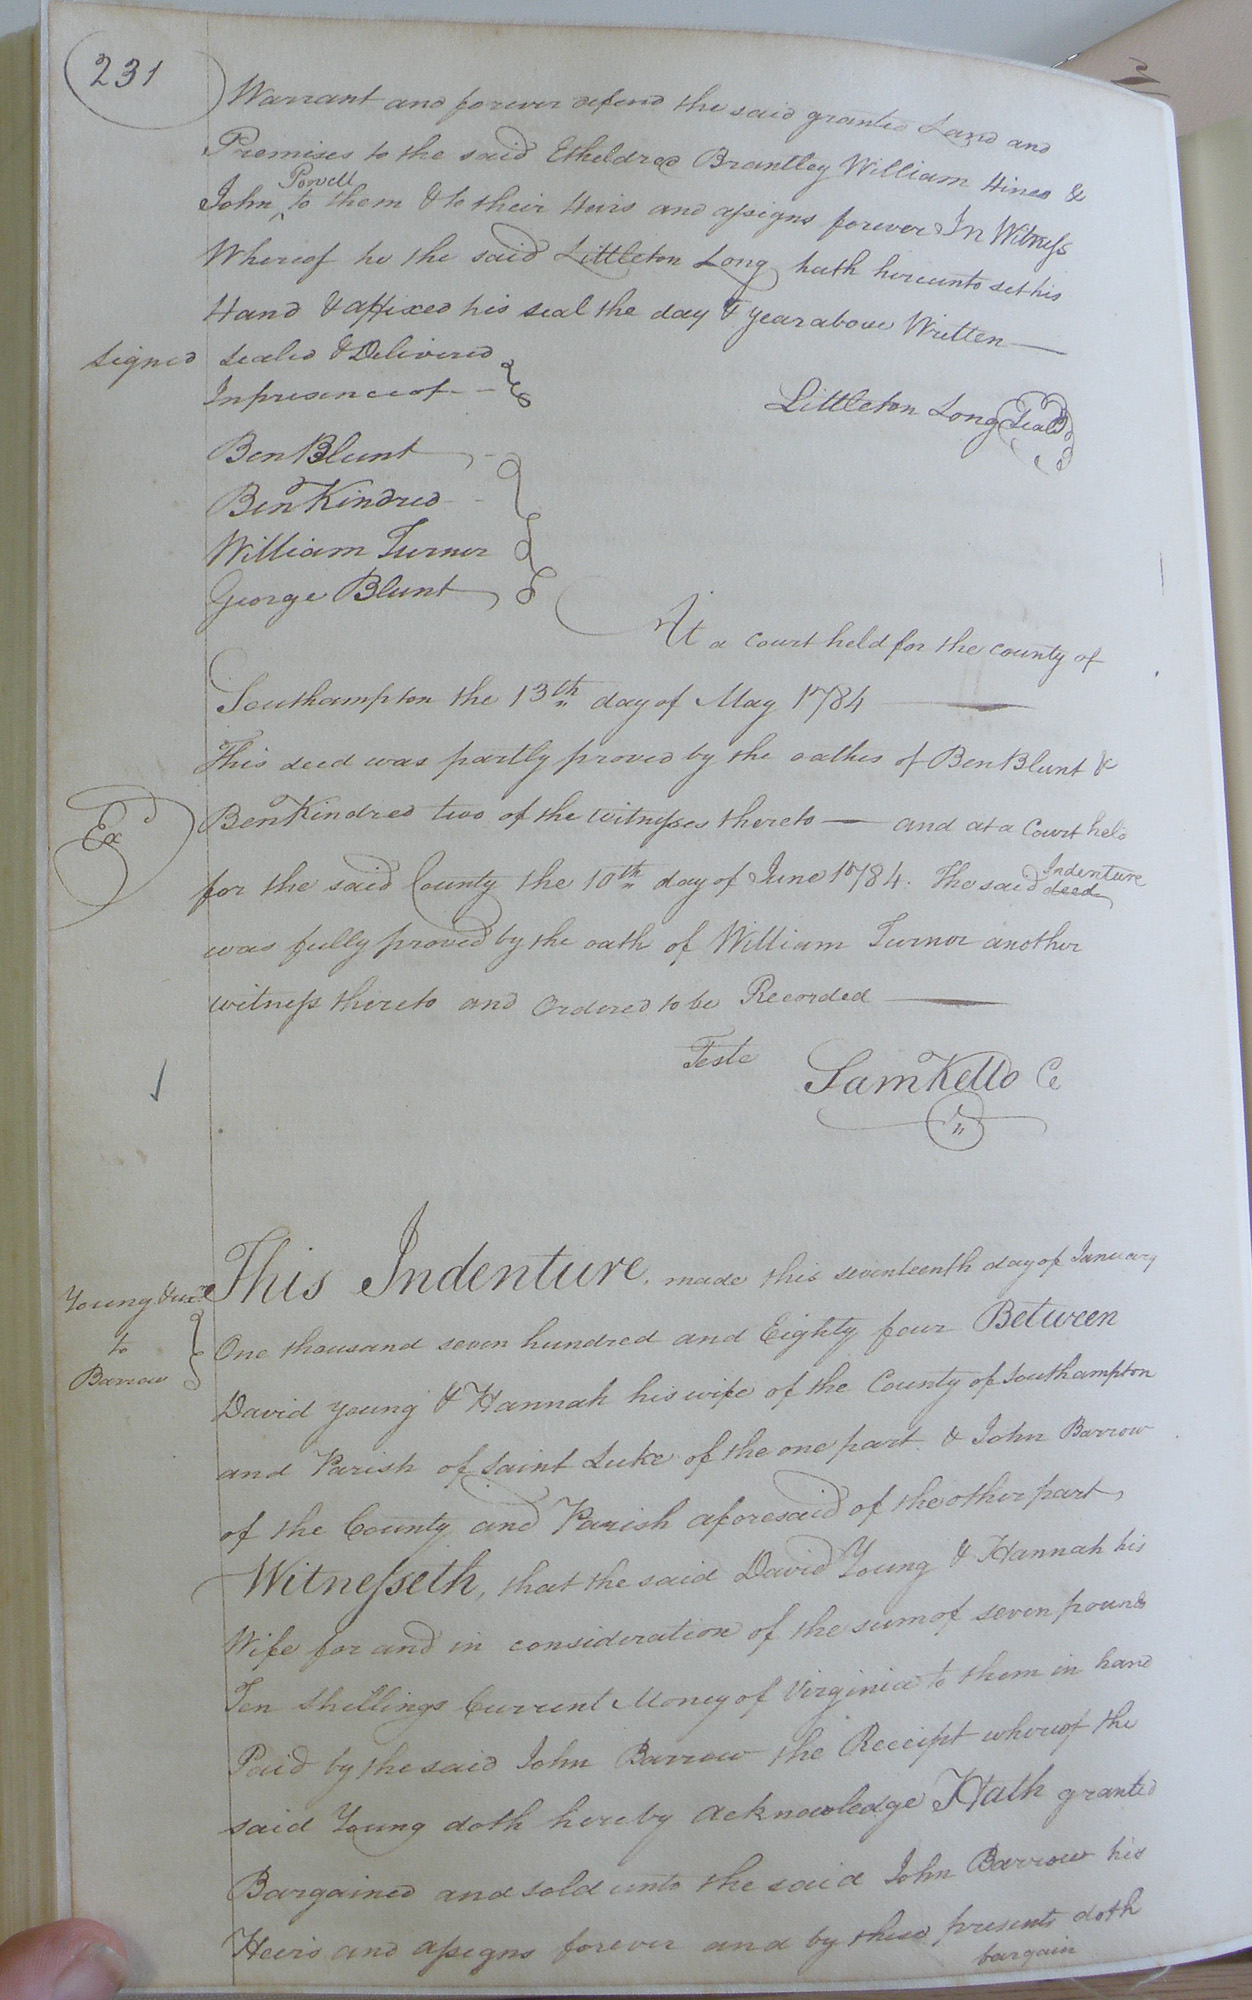 231
Warrant and forever defend the said granted Land and
Premises to the said Etheldred Brantley William Hines &
Powell
John ^ to them & to their Heirs and assigns forever In Witness
Whereof he the said Littleton Long hath hereunto set his
Hand & affixed his seal the day & year above Written
Signed sealed & Delivered
In presence of
Littleton Long Seal
Ben Blunt
Ben Kindred
William Turner
George Blunt
At a court held for the county of
Southampton the 13th day of May 1784
This deed was partly proved by the oathes of Ben Blunt &
Ex
Ben Kindred two of the witnesses thereto — and at a Court held
Indenture
for the said County the 10th day of June 1784. The said deed
was fully proved by the oath of William Turner another
witness thereto and Ordered to be Recorded
Teste Sam Kello C
This Indenture, made this seventeenth day of January
Young & ux
to
Barrow
One thousand seven hundred and Eighty four Between
David Young & Hannah his wife of the County of Southampton
and Parish of Saint Luke of the one part & John Barrow
of the County and Parish aforesaid of the other part,
Witnesseth, that the said David Young & Hannah his
Wife for and in consideration of the sum of seven pounds
Ten Shillings Current Money of Virginia to them in hand
Paid by the said John Barrow the Receipt whereof the
said Young doth hereby acknowledge Hath granted
Bargained and sold unto the said John Barrow his
Heirs and assigns forever and by these presents doth
bargain